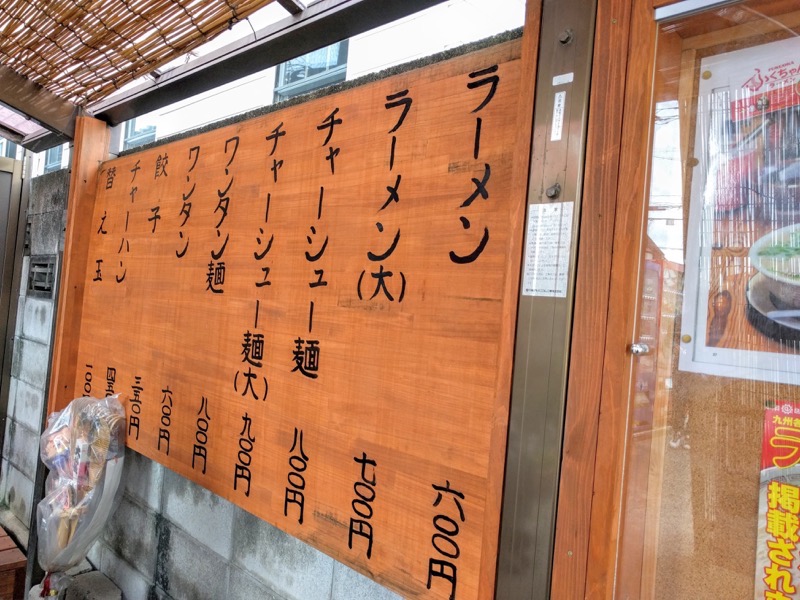 ラーメン 六〇〇円
ラーメン(大) 七〇〇円
チャーシュー麺 八〇〇円
チャーシュー麺(大) 九〇〇円
ワンタン麺 八〇〇円
ワンタン 六〇〇円
餃子 三五〇円
チャーハン 四五
替え玉 一〇〇
ふくちゃん
ラーメン
九州
ラ
掲載され